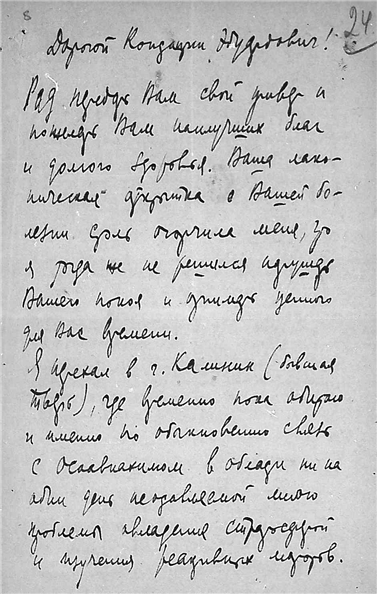 24
Дорогой Константин Эдуардович!
Рад передать Вам свой привет и
пожелать Вам наилучших благ
и долгого здоровья. Ваша лако-
ническая открытка о Вашей бо-
лезни столь огорчила меня, что
я тогда же не решился нарушать
Вашего покоя и отнимать ценного
для Вас времени.
Я приехал в г. Калинин (бывшая
Тверь), где временно пока обитаю
и именно по обыкновению связь
с Осоавиахимом в области ни на
один день неоставляемой мною
проблемы овладения стратосферой
и изучения реактивных моторов.